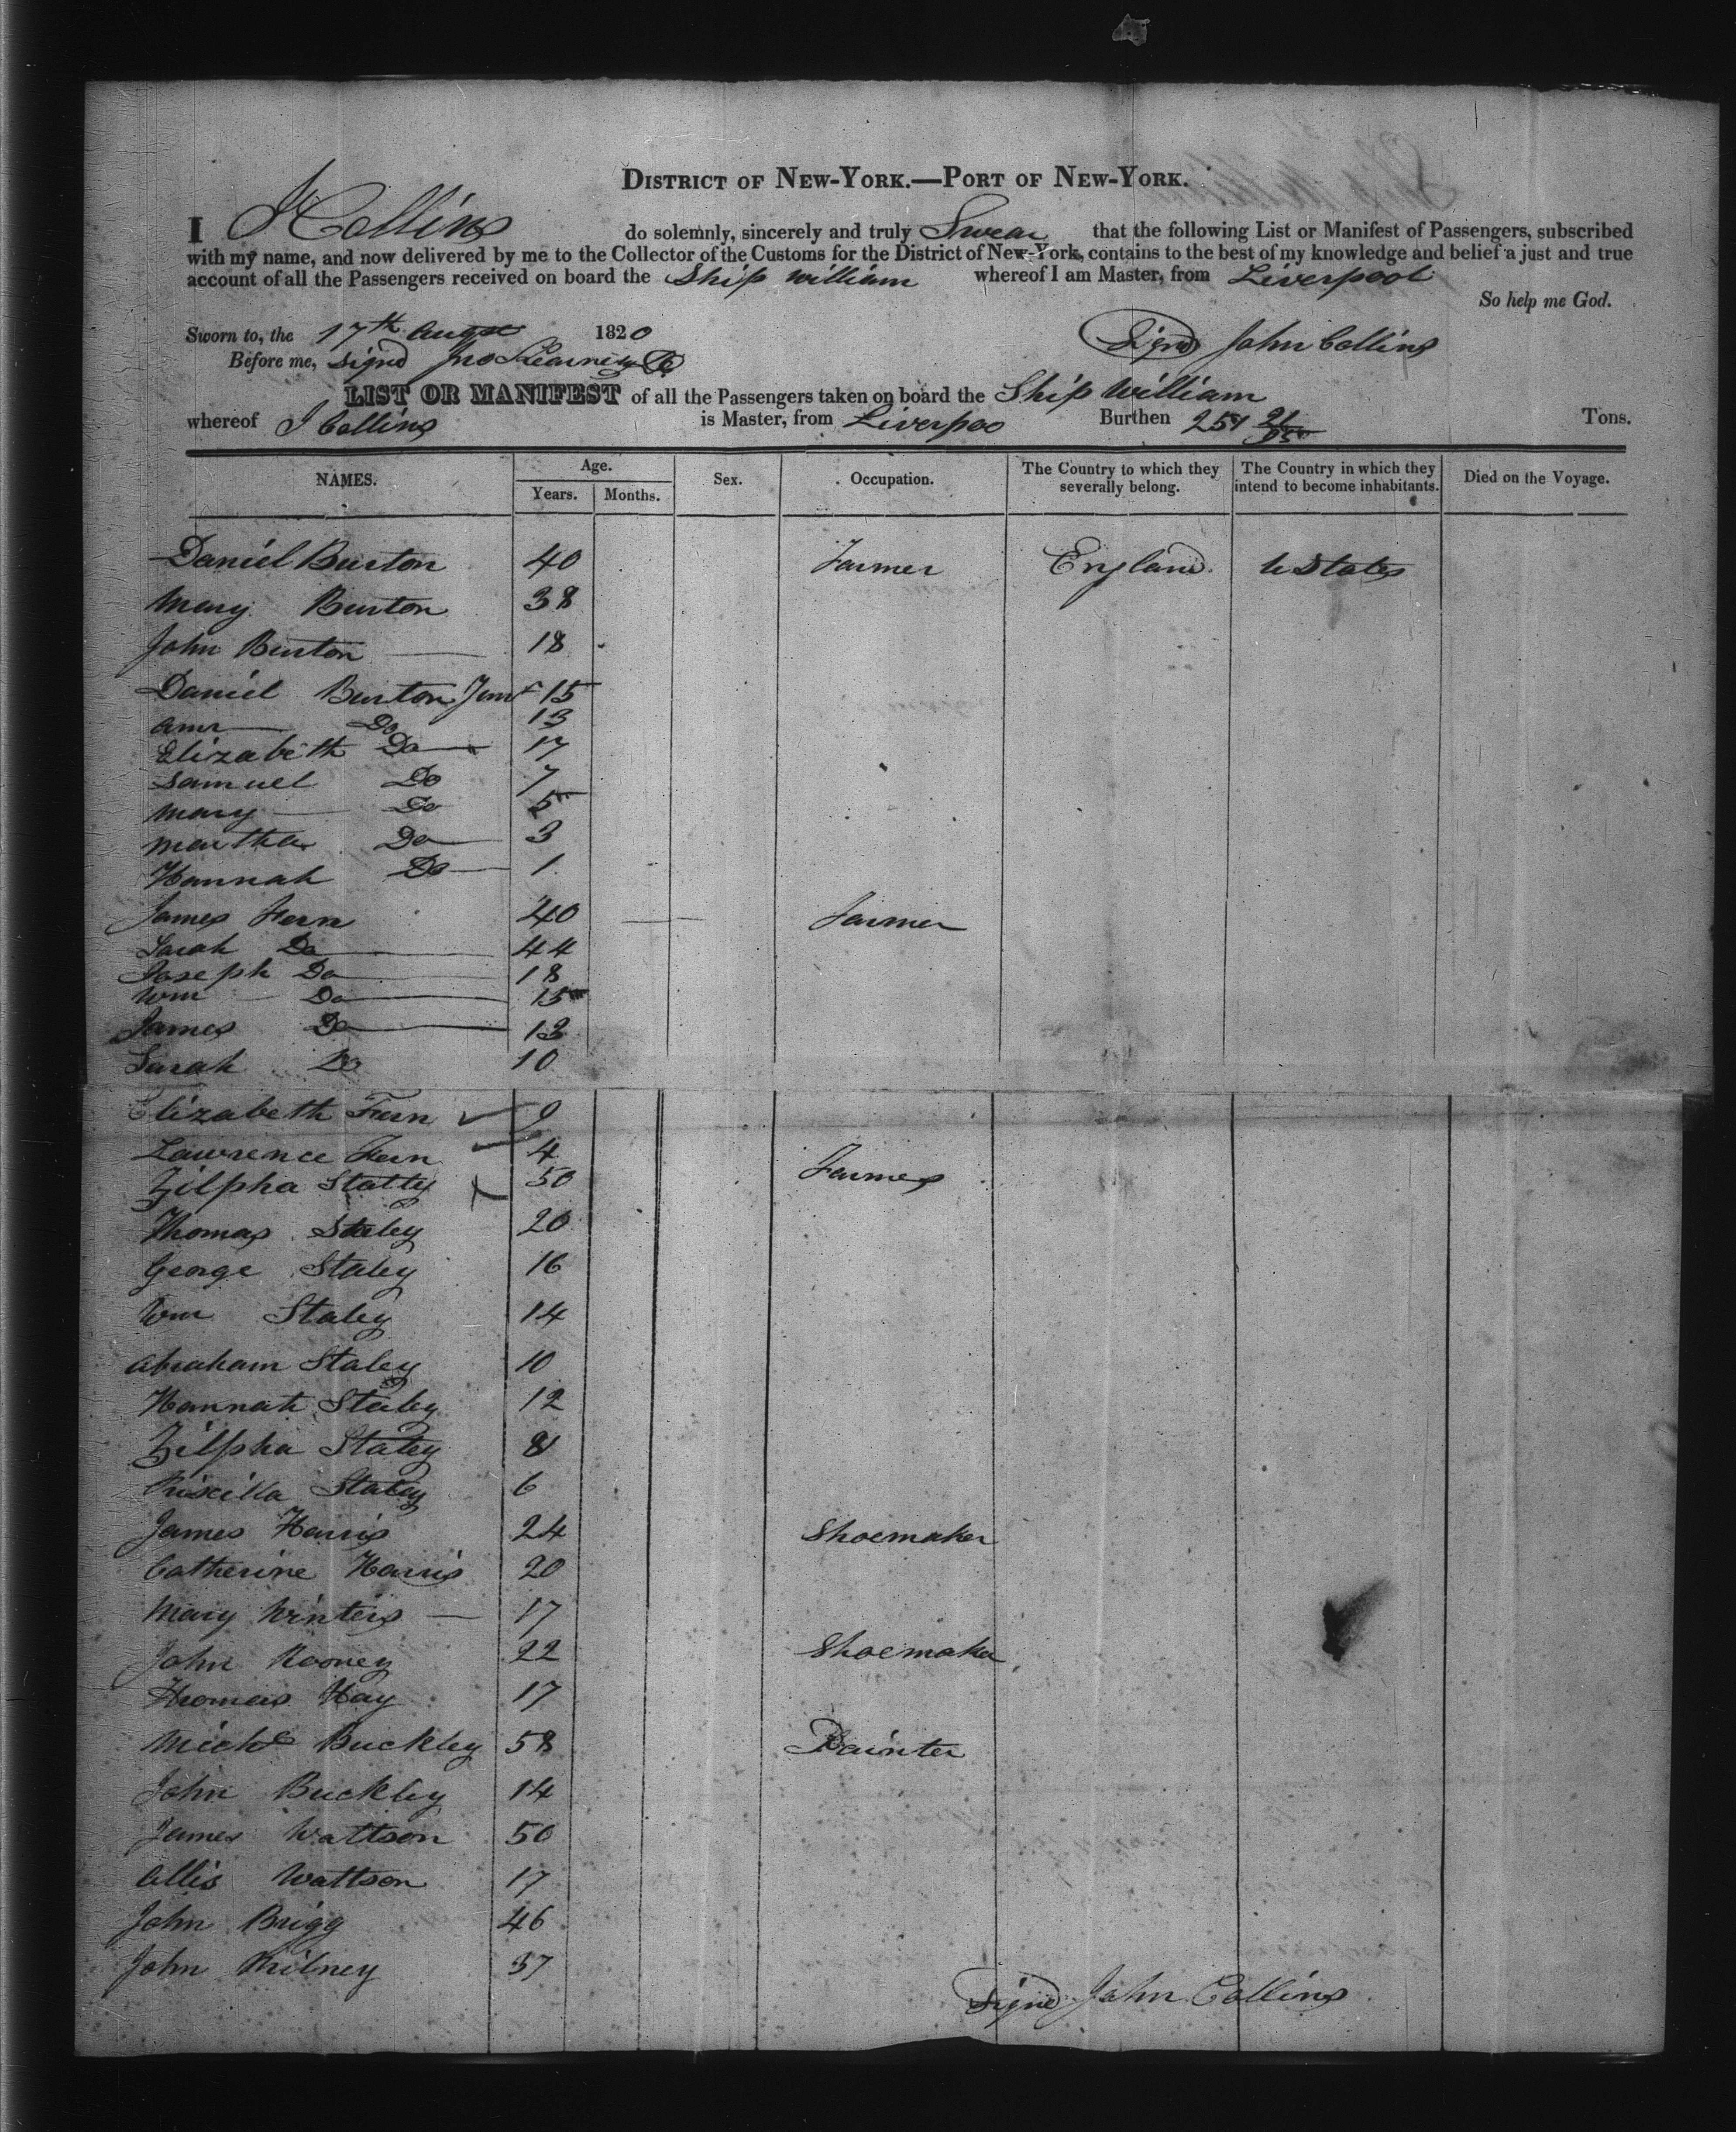 DISTRICT OF NEW-YORK.—PORT OF NEW-YORK.
I J Collins do solemnly, sincerely and truly Swear that the following List or Manifest of Passengers, subscribed
with my name, and now delivered by me to the Collector of the Customs for the District of New-York, contains to the best of my knowledge and belief a just and true
account of all the Passengers received on board the Ship William whereof I am Master, from Liverpool
So help me God.
Sworn to, the 17th 1820 Signd John Collins
Before me, signd Jno
LIST OR MANIFEST of all the Passengers taken on board the Ship William
whereof J Collins is Master, from Liverpoo Burthen 251 21/95 Tons.
NAMES. Age. Years. Months. Sex. Occupation. The Country to which they severally belong. The Country in which they intend to become inhabitants. Died on the Voyage.
Daniel Burton 40 Farmer England U States
Mary Burton 38
John Burton 18
Daniel Burton Junr 15
Ann Do 13
Elizabeth Do 17
Samuel Do 7
Mary Do 5
Martha Do 3
Hannah Do 1
James Fern 40 Farmer
Sarah Do 44
Joseph Do 18
Wm Do 15
James Do 13
Sarah Do 10
Elizabeth Fern 9
Lawrence Fern 4
Zilpha Statty 50 Farmer
Thomas Staley 20
George Staley 16
Wm Staley 14
Abraham Staley 10
Hannah Staley 12
Zilpha Staley 8
Priscilla Staley 6
James Harris 24 Shoemaker
Catherine Harris 20
Mary Winters 17
John Rooney 22 Shoemaker
Thomas Hay 17
Michl Buckley 58 Painter
John Buckley 14
James Wattson 50
Allis Wattson 17
John Brigg 46
John 37
Signd John Collins